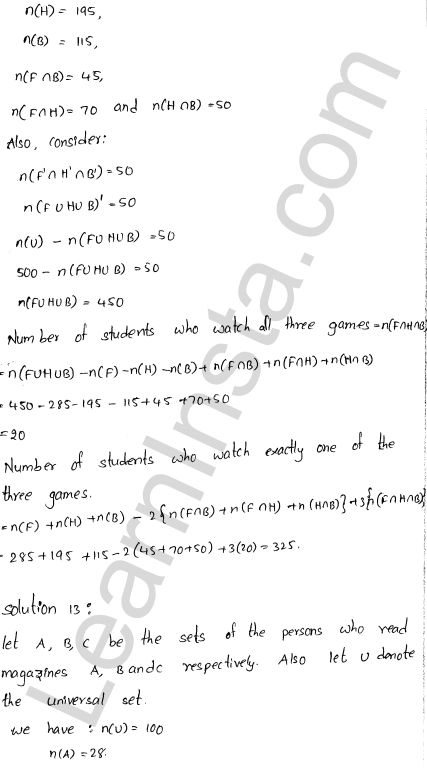 n(H) = 195,
n(B) = 115,
n(F ∩B) = 45,
n(F∩H) = 70 and n(H ∩B) = 50
Also, consider:
n(F'∩ H' ∩ B') = 50
n(F ∪ H∪ B)' = 50
n(U) - n(F∪ H∪ B) = 50
500 - n(F∪ H∪ B) = 50
n(F∪ H∪ B) = 450
Number of students who watch all three games = n(F∩H∩B)
= n(F∪H∪B) - n(F) - n(H) - n(B) + n(F∩B) + n(F∩H) + n(H∩B)
= 450 - 285 - 195 - 115 + 45 + 70 + 50
= 20
Number of students who watch exactly one of the
three games.
= n(F) + n(H) + n(B) - 2{n(F∩B) + n(F ∩H) + n(H∩B)} + 3{n(F∩H∩B)}
- 285 + 195 + 115 - 2(45 + 70 + 50) + 3(20) = 325.
Solution 13 :
let A, B, C be the sets of the persons who read
magazines A, B and C respectively. Also let U denote
the universal set.
we have : n(U) = 100
n(A) = 28.
LearnInsta.com